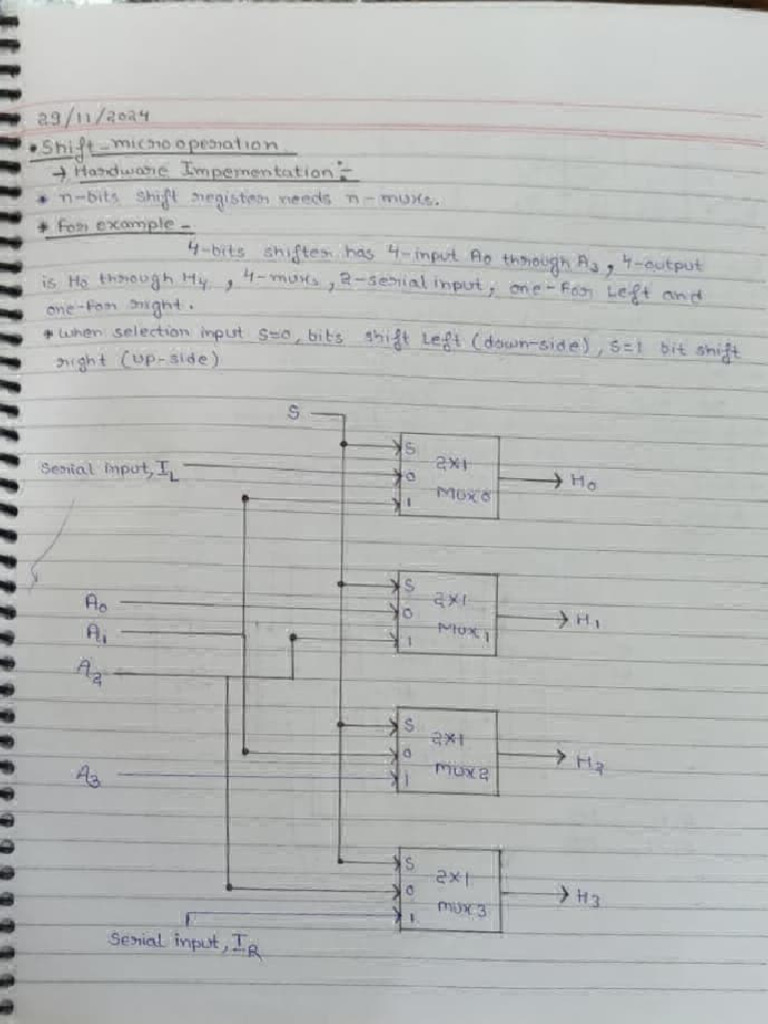 29/11/2024
• Shift microoperation
→ Hardware Impementation :-
* n-bits shift register needs n-muxs.
* For example -
4-bits shifter has 4-input A0 through A3, 4-output
is H0 through H4, 4-muxs, 2-serial input, one-for Left and
one-for right.
* when selection input S=0, bits shift left (down-side), S=1 bit shift
right (up-side)
S
S
Serial input, IL
2×1
0
MUX0
H0
1
S
A0
2×1
0
A1
MUX1
H1
1
A2
S
2×1
0
A3
MUX2
H2
1
S
2×1
0
MUX3
H3
1
Serial input, IR